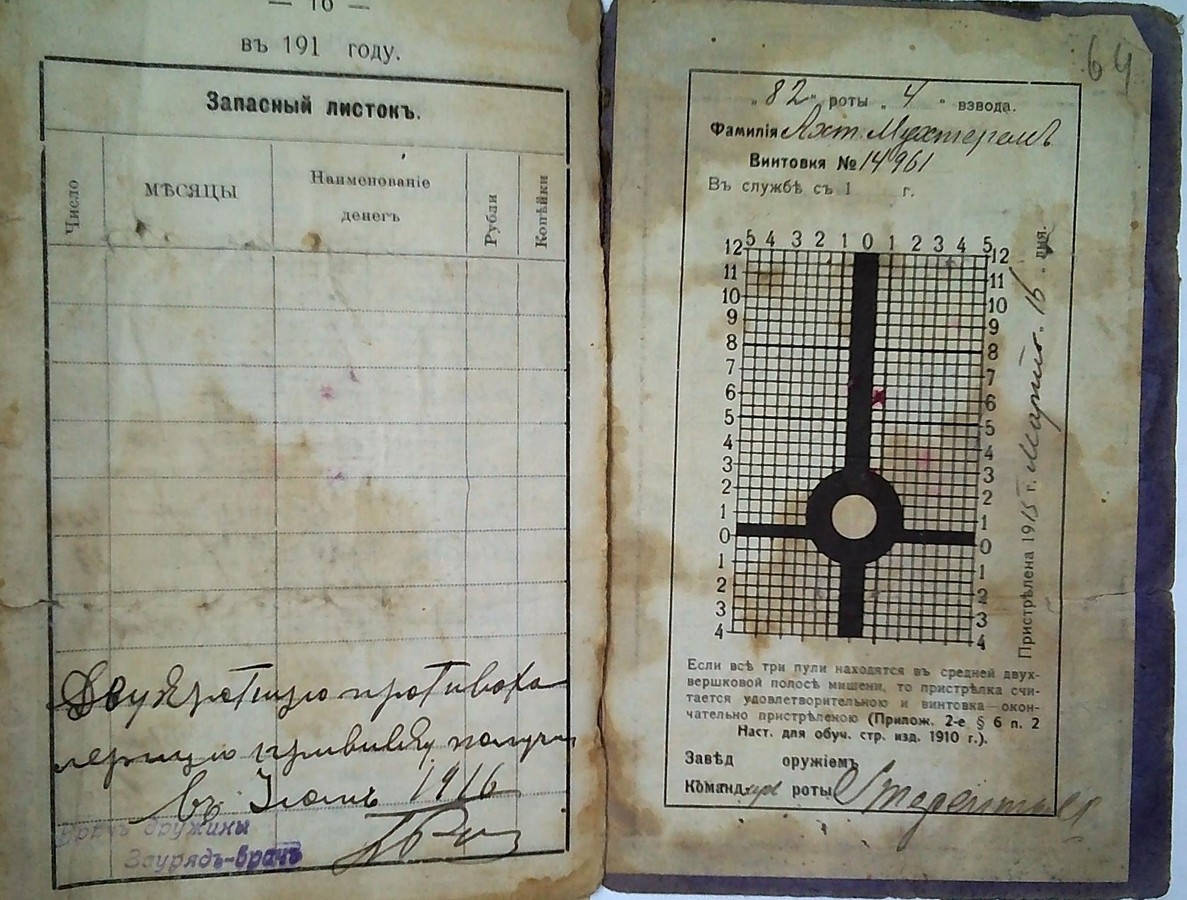 — 16 —
въ 191 году.
Запасный листокъ.
Число
МѢСЯЦЫ
Наименованіе
денегъ
Рубли
Копѣйки
Двукратную противохо
лерную прививку получи
въ 1916
Врачъ дружины
Заурядъ-врачъ
64
„82“ роты „4“ взвода.
Фамилія Ахт. Мухтерамъ
Винтовка № 14961
Въ службѣ съ 1 г.
5 4 3 2 1 0 1 2 3 4 5
12 12
11 11
10 10
9 9
8 8
7 7
6 6
5 5
4 4
3 3
2 2
1 1
0 0
1 1
2 2
3 3
4 4
Пристрѣлена 1915 г. Марта 16 дня.
Если всѣ три пули находятся въ средней двух-
вершковой полосѣ мишени, то пристрѣлка счи-
тается удовлетворительною и винтовка—окон-
чательно пристрѣленою (Прилож. 2-е § 6 п. 2
Наст. для обуч. стр. изд. 1910 г.).
Завѣд оружіемъ
Команд-иръ роты